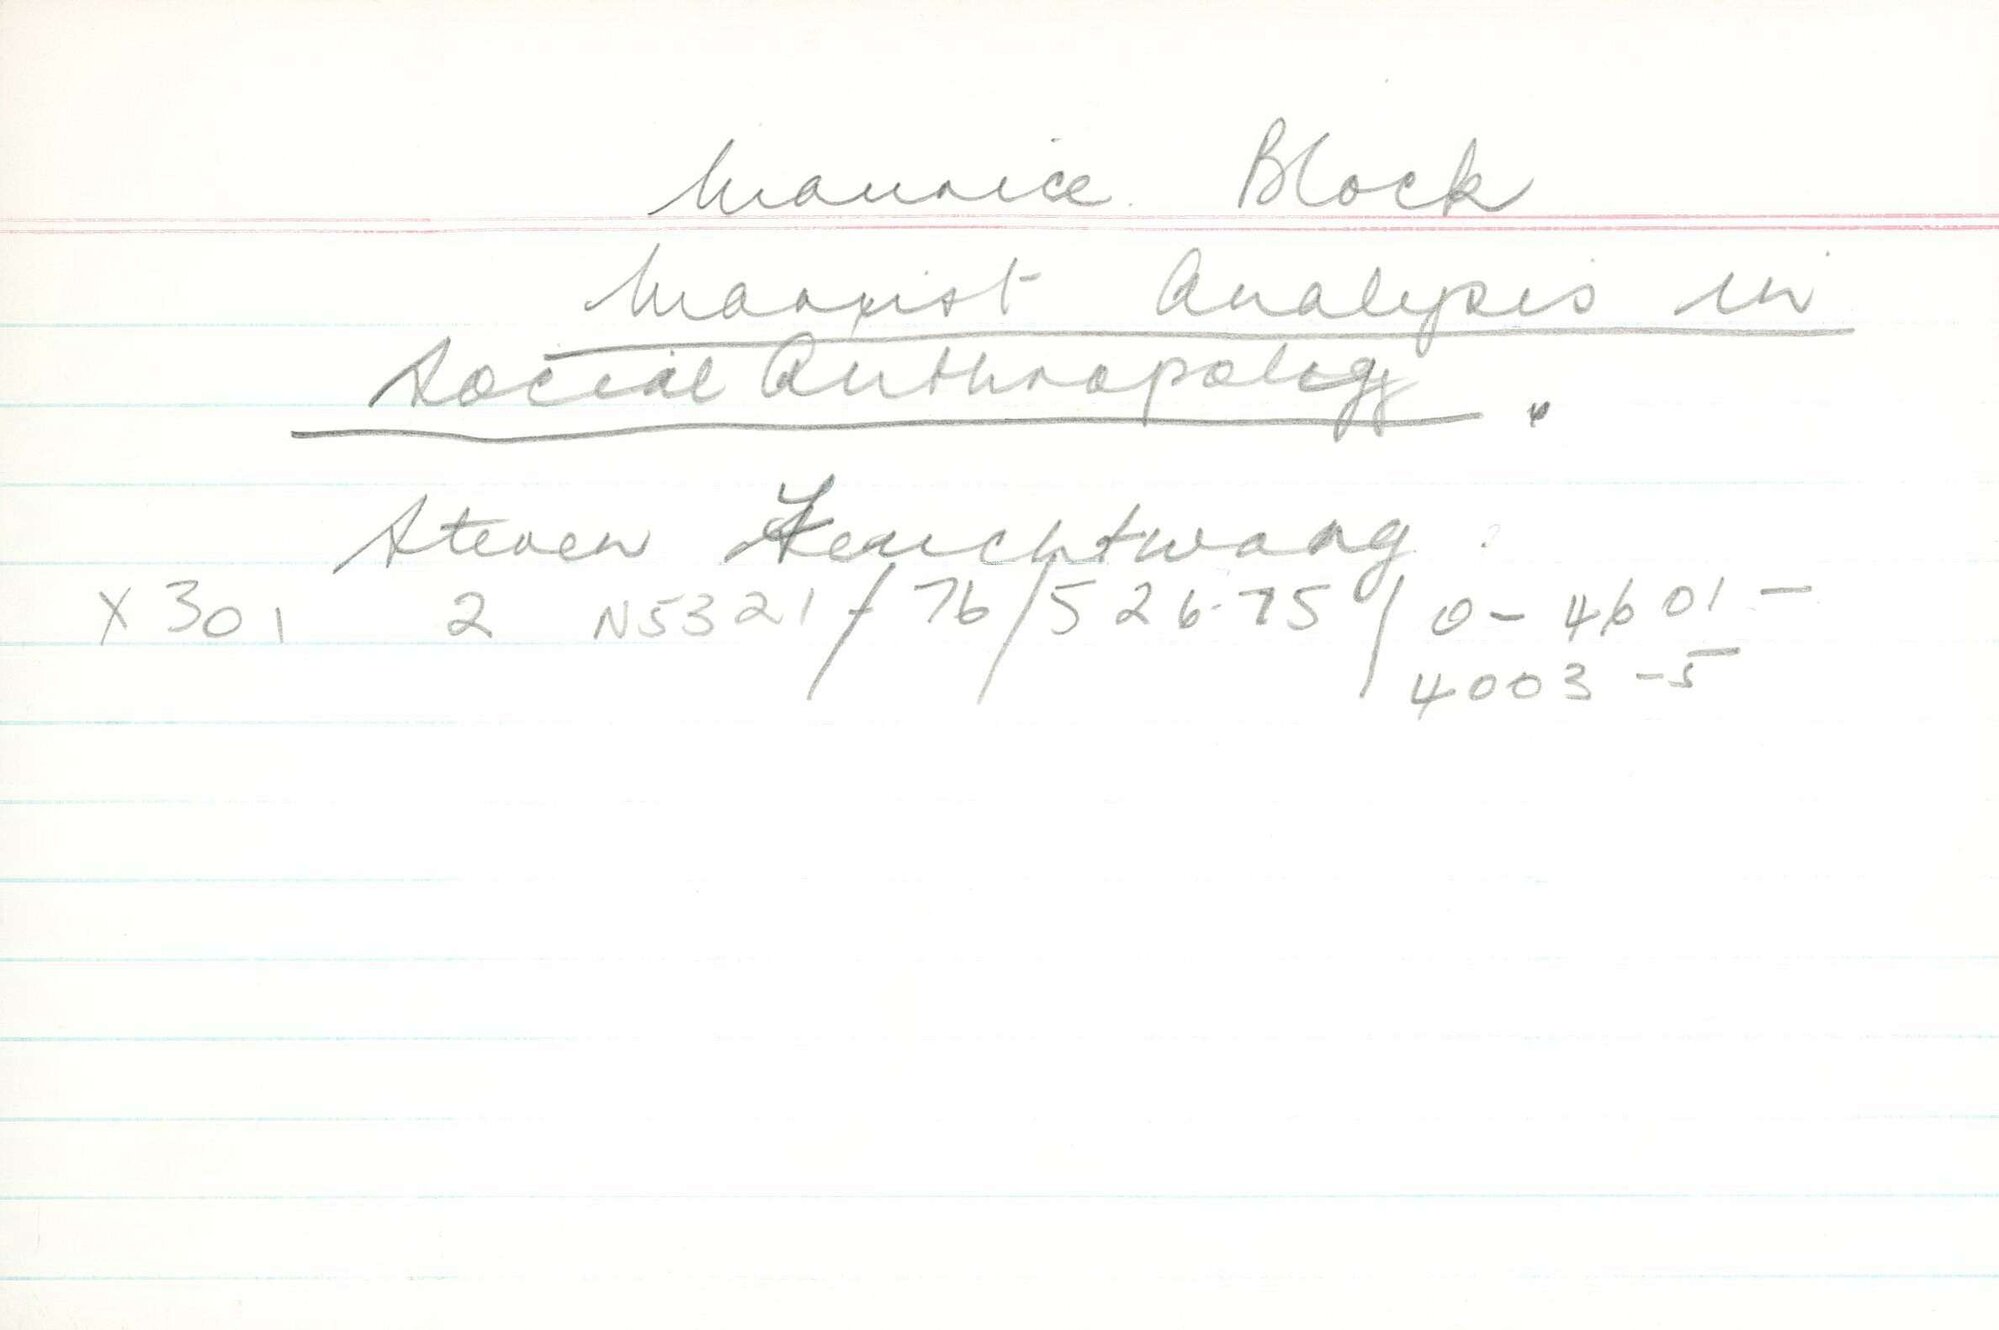 Maurice Block
Marxist Analysis in
Social Anthropology.
Steven Feuchtwang.
X301 2 N5321/76/526.75/0-4601-
4003-5